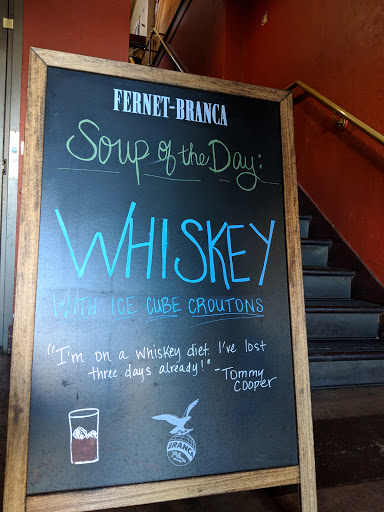 FERNET-BRANCA
Soup of the Day:
WHISKEY
WITH ICE CUBE CROUTONS
"I'm on a whiskey diet. I've lost
three days already!" -Tommy
Cooper
BRANCA